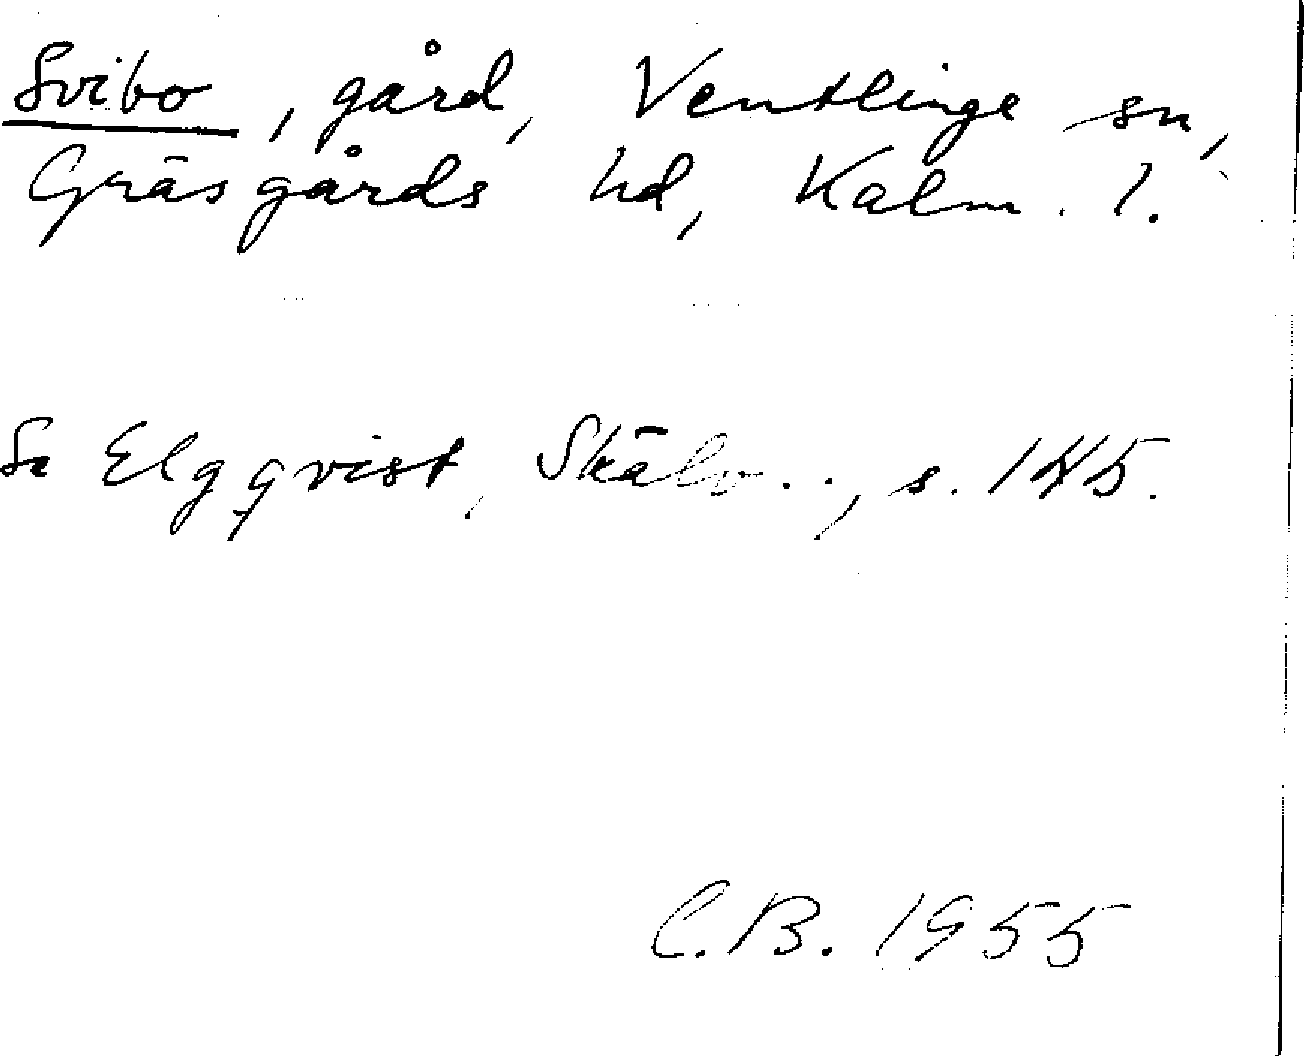 Svibo, gård, Ventlinge sn,
Gräsgårds hd, Kalm. l.
Se Elgqvist, Skälv.., s. 145.
C.B. 1955